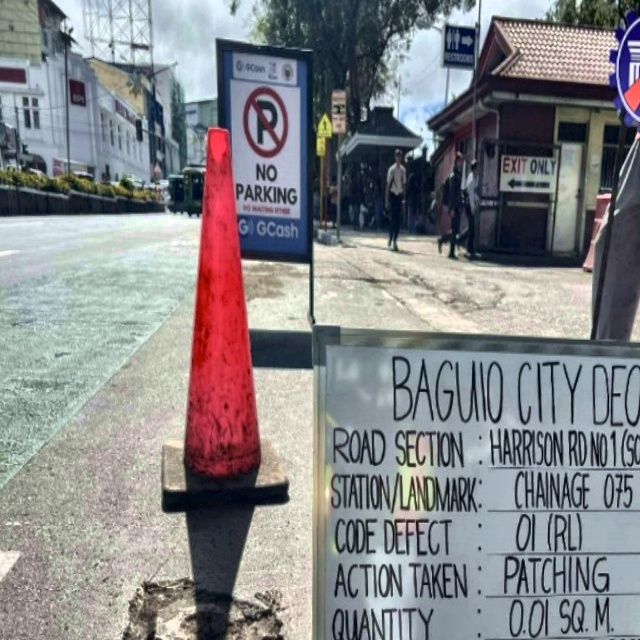 GCash
RESTROOMS
P
NO
PARKING
NO WAITING EITHER
GCash
EXIT ONLY
BAGUIO CITY DEO
ROAD SECTION : HARRISON RD NO 1 (SO
STATION/LANDMARK: CHAINAGE 075
CODE DEFECT : 01 (RL)
ACTION TAKEN : PATCHING
QUANTITY : 0.01 SQ. M.